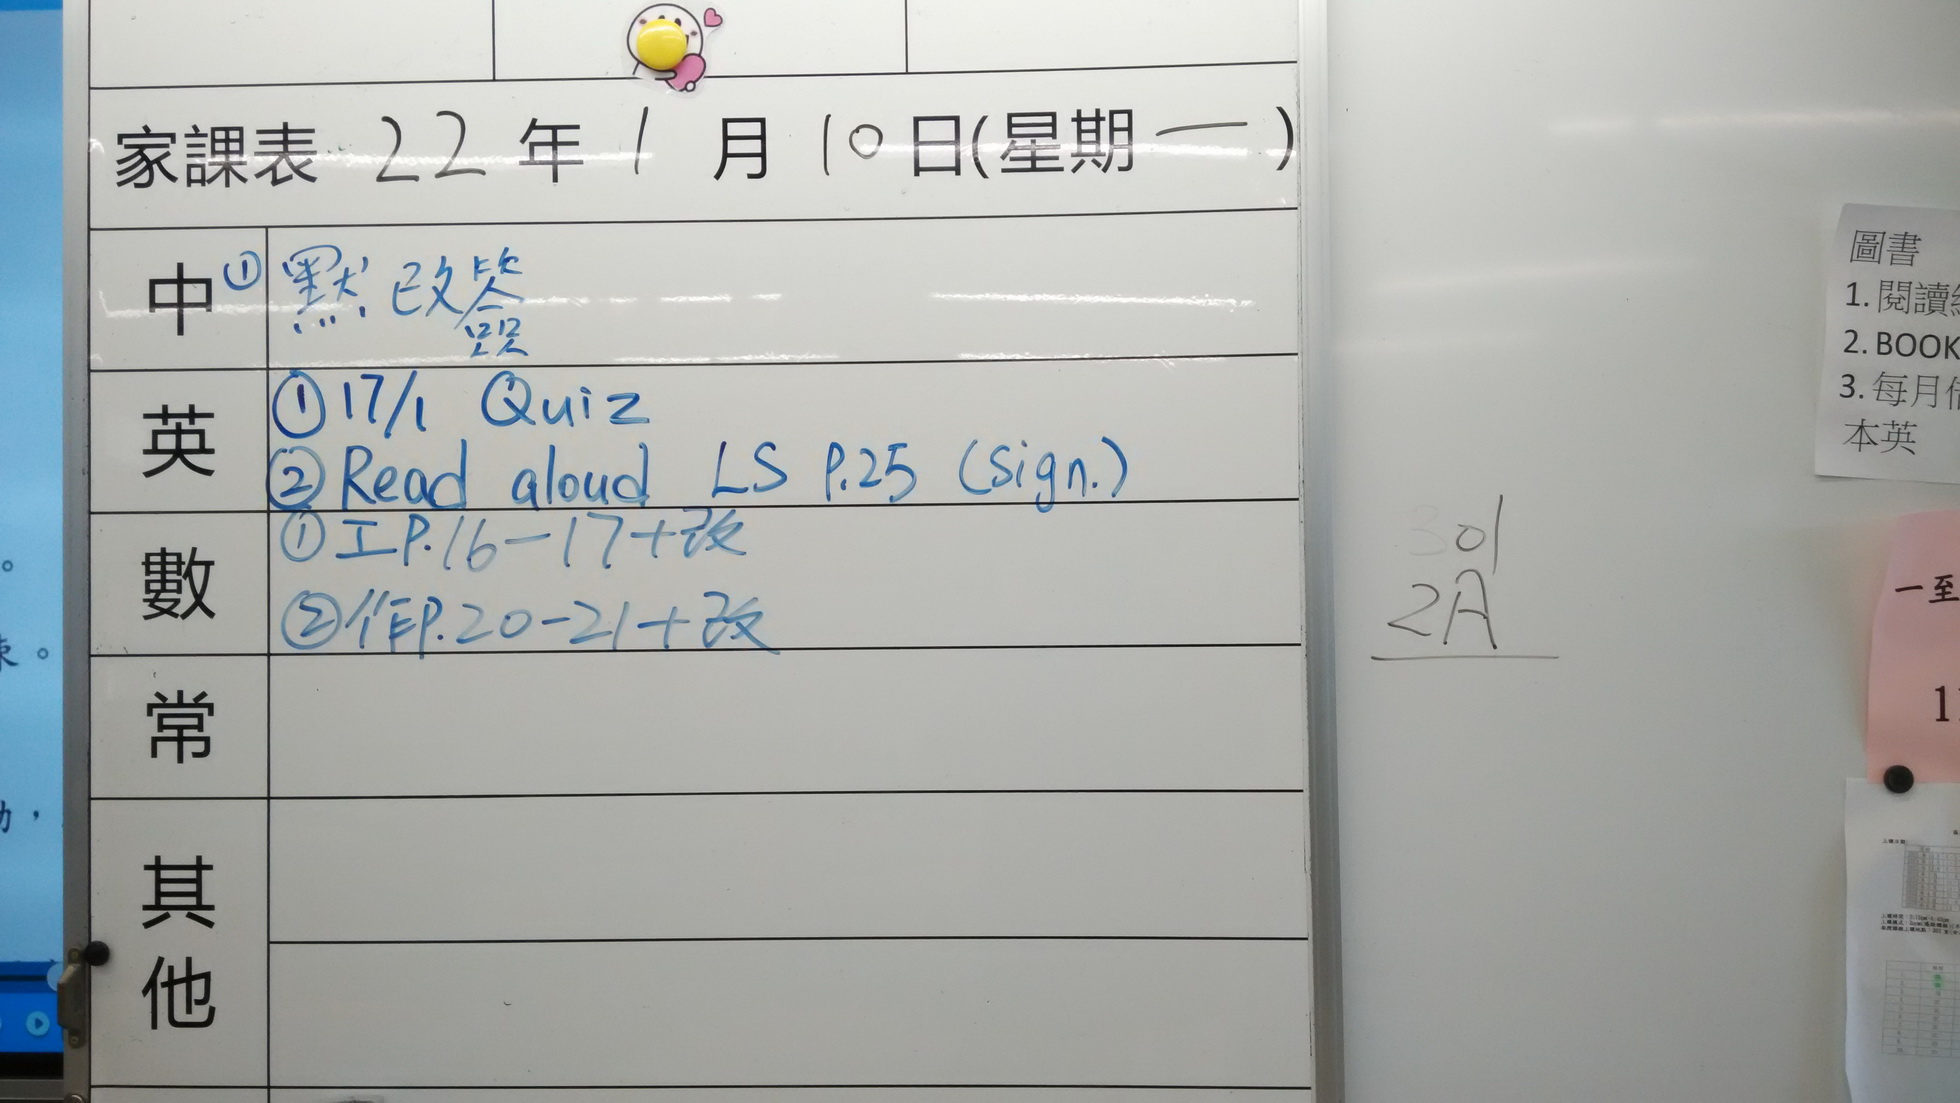 家課表 22 年 1 月 10 日(星期一)
中 ① 默改簽
英 ① 17/1 Quiz
② Read aloud LS P.25 (sign.)
數 ① 工P.16-17+改
② 作P.20-21+改
常
其他
301
2A
圖書
1. 閱讀
2. BOOK
3. 每月借
本英
一至